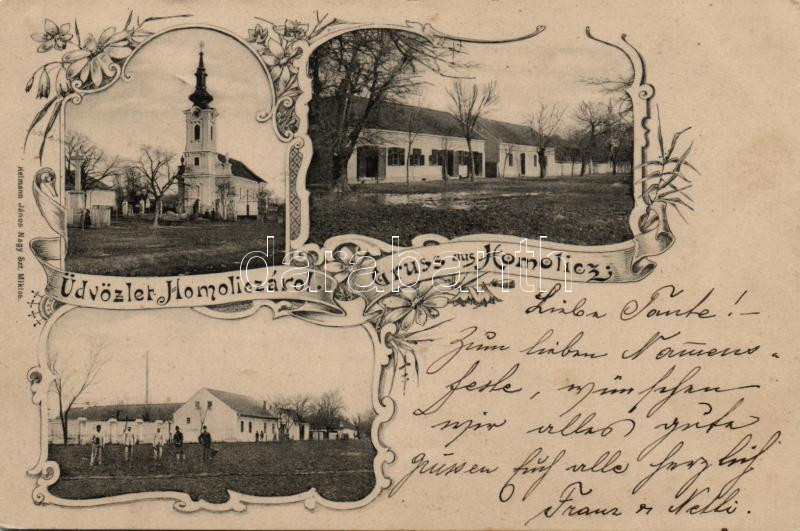 Heimann János Nagy Szt. Miklós.
Üdvözlet Homoliczáról.
Gruss aus Homolicz.
darabanth.com
Liebe Tante! –
Zum lieben Namens-
feste, wünschen
wir alles gute
grüssen Euch alle herzlich
Franz & Netti.